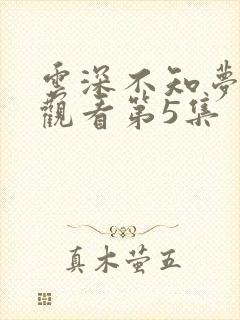 雲深不知夢
觀看第5集
真木萤五